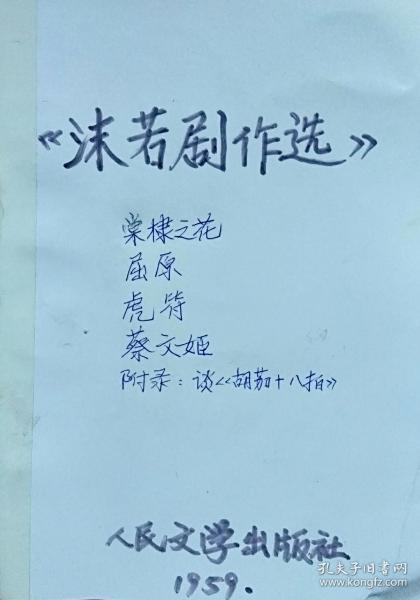 《沫若剧作选》
棠棣之花
屈原
虎符
蔡文姬
附录：谈《胡茄十八拍》
人民文学出版社
1959.
孔夫子旧书网
www.kongfz.com